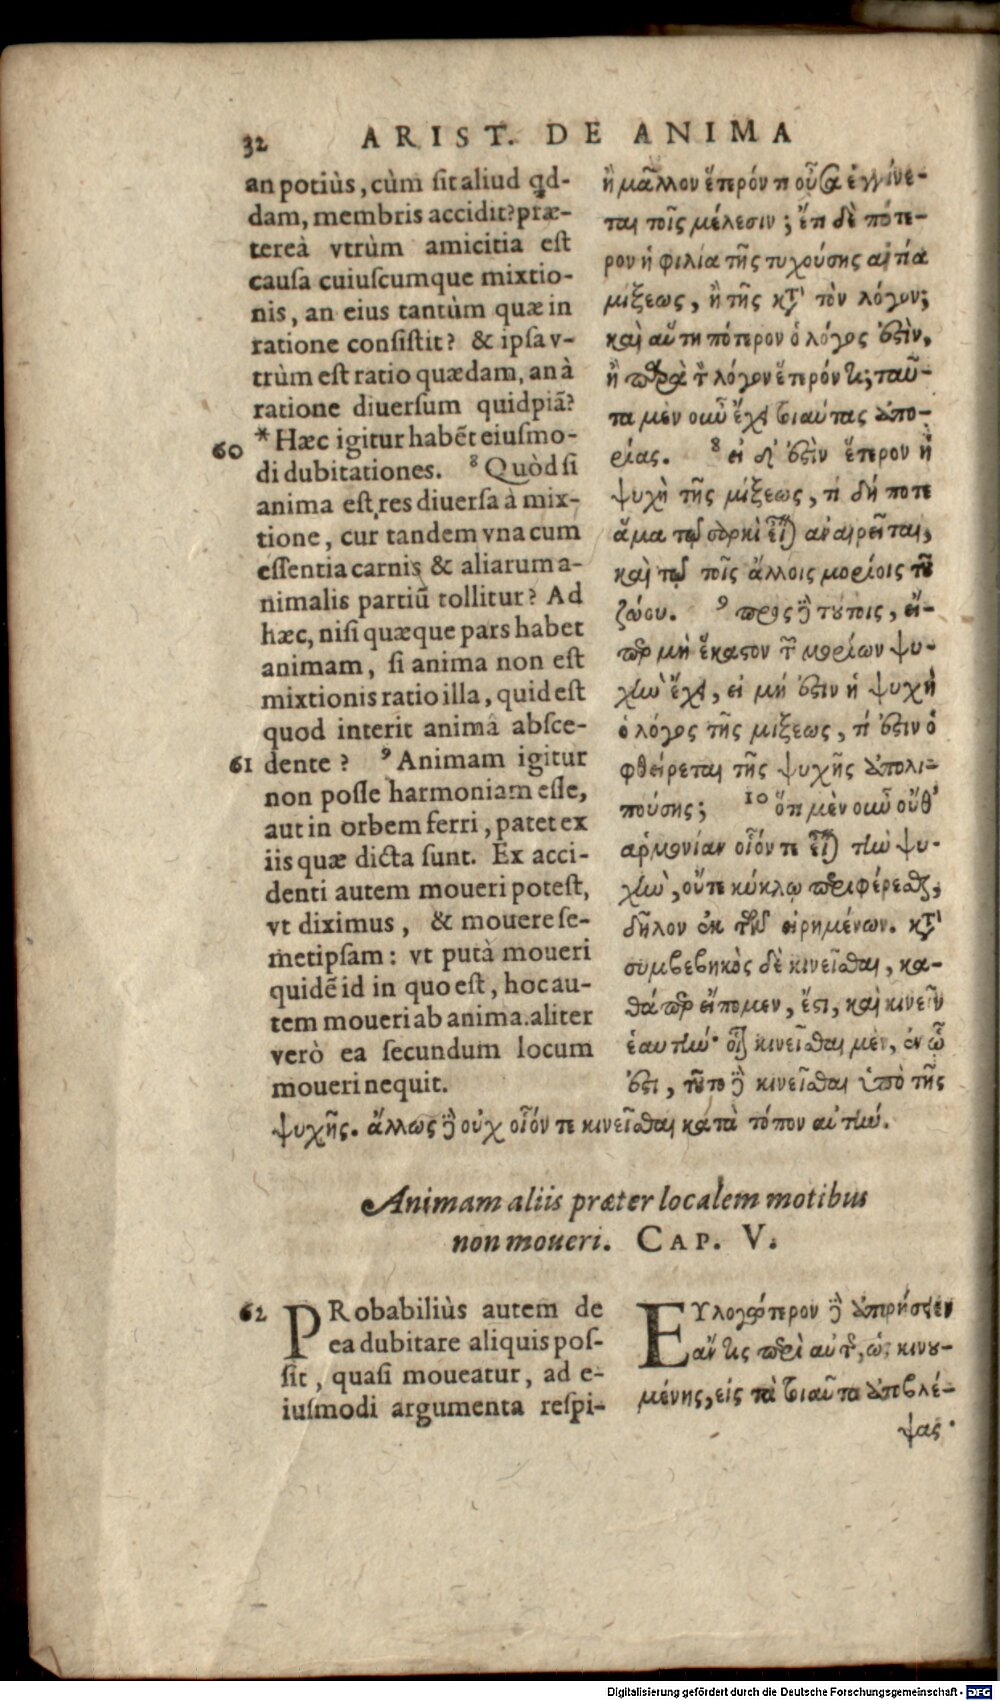 32 ARIST. DE ANIMA
an potiùs, cùm sit aliud qd-
dam, membris accidit? præ-
tereà vtrùm amicitia est
causa cuiuscumque mixtio-
nis, an eius tantùm quæ in
ratione consistit? & ipsa v-
trùm est ratio quædam, an à
ratione diuersum quidpiã?
60 *Hæc igitur habẽt eiusmo-
di dubitationes. 8 Quòd si
anima est res diuersa à mix-
tione, cur tandem vna cum
essentia carnis & aliarum a-
nimalis partiũ tollitur? Ad
hæc, nisi quæque pars habet
animam, si anima non est
mixtionis ratio illa, quid est
quod interit animâ absce-
61 dente? 9 Animam igitur
non posse harmoniam esse,
aut in orbem ferri, patet ex
iis quæ dicta sunt. Ex acci-
denti autem moueri potest,
vt diximus, & mouere se-
metipsam: vt putà moueri
quidẽ id in quo est, hoc au-
tem moueri ab anima. aliter
verò ea secundum locum
moueri nequit.
ἢ μᾶλλον ἕτερόν τι οὖσα ἐγγίνε-
ται τοῖς μέλεσιν; ἔτι δὲ πότε-
ρον ἡ φιλία τῆς τυχούσης αἰτία
μίξεως, ἢ τῆς κτ' τὸν λόγον;
καὶ αὕτη πότερον ὁ λόγος ἐστὶν,
ἢ παρὰ τ λόγον ἕτερόν τι; ταῦ-
τα μὲν οὖν ἔχει τοιαύτας ἀπο-
ρίας. 8 εἰ δ' ἐστὶν ἕτερον ἡ
ψυχὴ τῆς μίξεως, τί δή ποτε
ἅμα τῷ σαρκὶ εἶναι ἀναιρεῖται,
καὶ τῷ τοῖς ἄλλοις μορίοις τοῦ
ζώου. 9 πρὸς δὲ τούτοις, εἴ-
περ μὴ ἕκαστον τῶν μορίων ψυ-
χὴν ἔχει, εἰ μή ἐστιν ἡ ψυχὴ
ὁ λόγος τῆς μίξεως, τί ἐστιν ὃ
φθείρεται τῆς ψυχῆς ἀπολι-
πούσης; 10 ὅτι μὲν οὖν οὔθ'
ἁρμονίαν οἷόν τε εἶναι τὴν ψυ-
χὴν, οὔτε κύκλῳ περιφέρεσθαι,
δῆλον ἐκ τῶν εἰρημένων. κτ'
συμβεβηκὸς δὲ κινεῖσθαι, κα-
θάπερ εἴπομεν, ἔστι, καὶ κινεῖν
ἑαυτήν· οἷον κινεῖσθαι μὲν, ἐν ᾧ
ἐστι, τοῦτο δὲ κινεῖσθαι ὑπὸ τῆς
ψυχῆς. ἄλλως δὲ οὐχ οἷόν τε κινεῖσθαι κατὰ τόπον αὐτήν.
Animam aliis præter localem motibus
non moueri. CAP. V.
62 PRobabiliùs autem de
ea dubitare aliquis pos-
sit, quasi moueatur, ad e-
iusmodi argumenta respi-
ΕΥλογώτερον δὲ ἀπορήσειεν
ἄν τις περὶ αὐτῆς, ὡς κινου-
μένης, εἰς τὰ τοιαῦτα ἀποβλέ-
ψας·
Digitalisierung gefördert durch die Deutsche Forschungsgemeinschaft - DFG